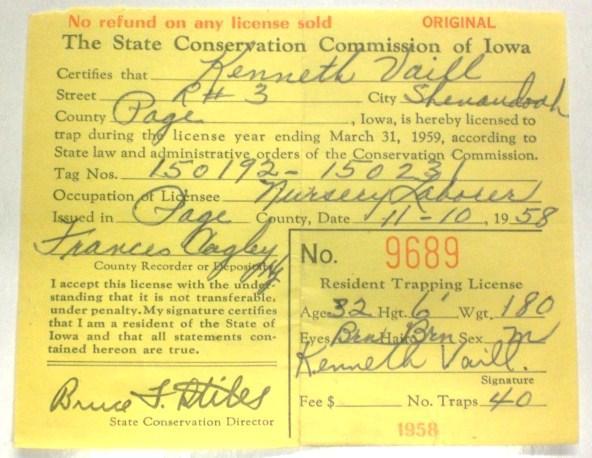 No refund on any license sold ORIGINAL
The State Conservation Commission of Iowa
Certifies that Kenneth Vaill
Street R#3 City Shenandoah
County Page, Iowa, is hereby licensed to
trap during the license year ending March 31, 1959, according to
State law and administrative orders of the Conservation Commission.
Tag Nos. 150192-150231
Occupation of Licensee Nursery Laborer
Issued in Page County, Date 11-10, 1958
Frances Nagley
County Recorder or Depositary
I accept this license with the under-
standing that it is not transferable,
under penalty. My signature certifies
that I am a resident of the State of
Iowa and that all statements con-
tained hereon are true.
Bruce F. Stiles
State Conservation Director
No. 9689
Resident Trapping License
Age 32 Hgt. 6' Wgt. 180
Eyes Brn Hair Brn Sex M
Kenneth Vaill.
Signature
Fee $ No. Traps 40
1958